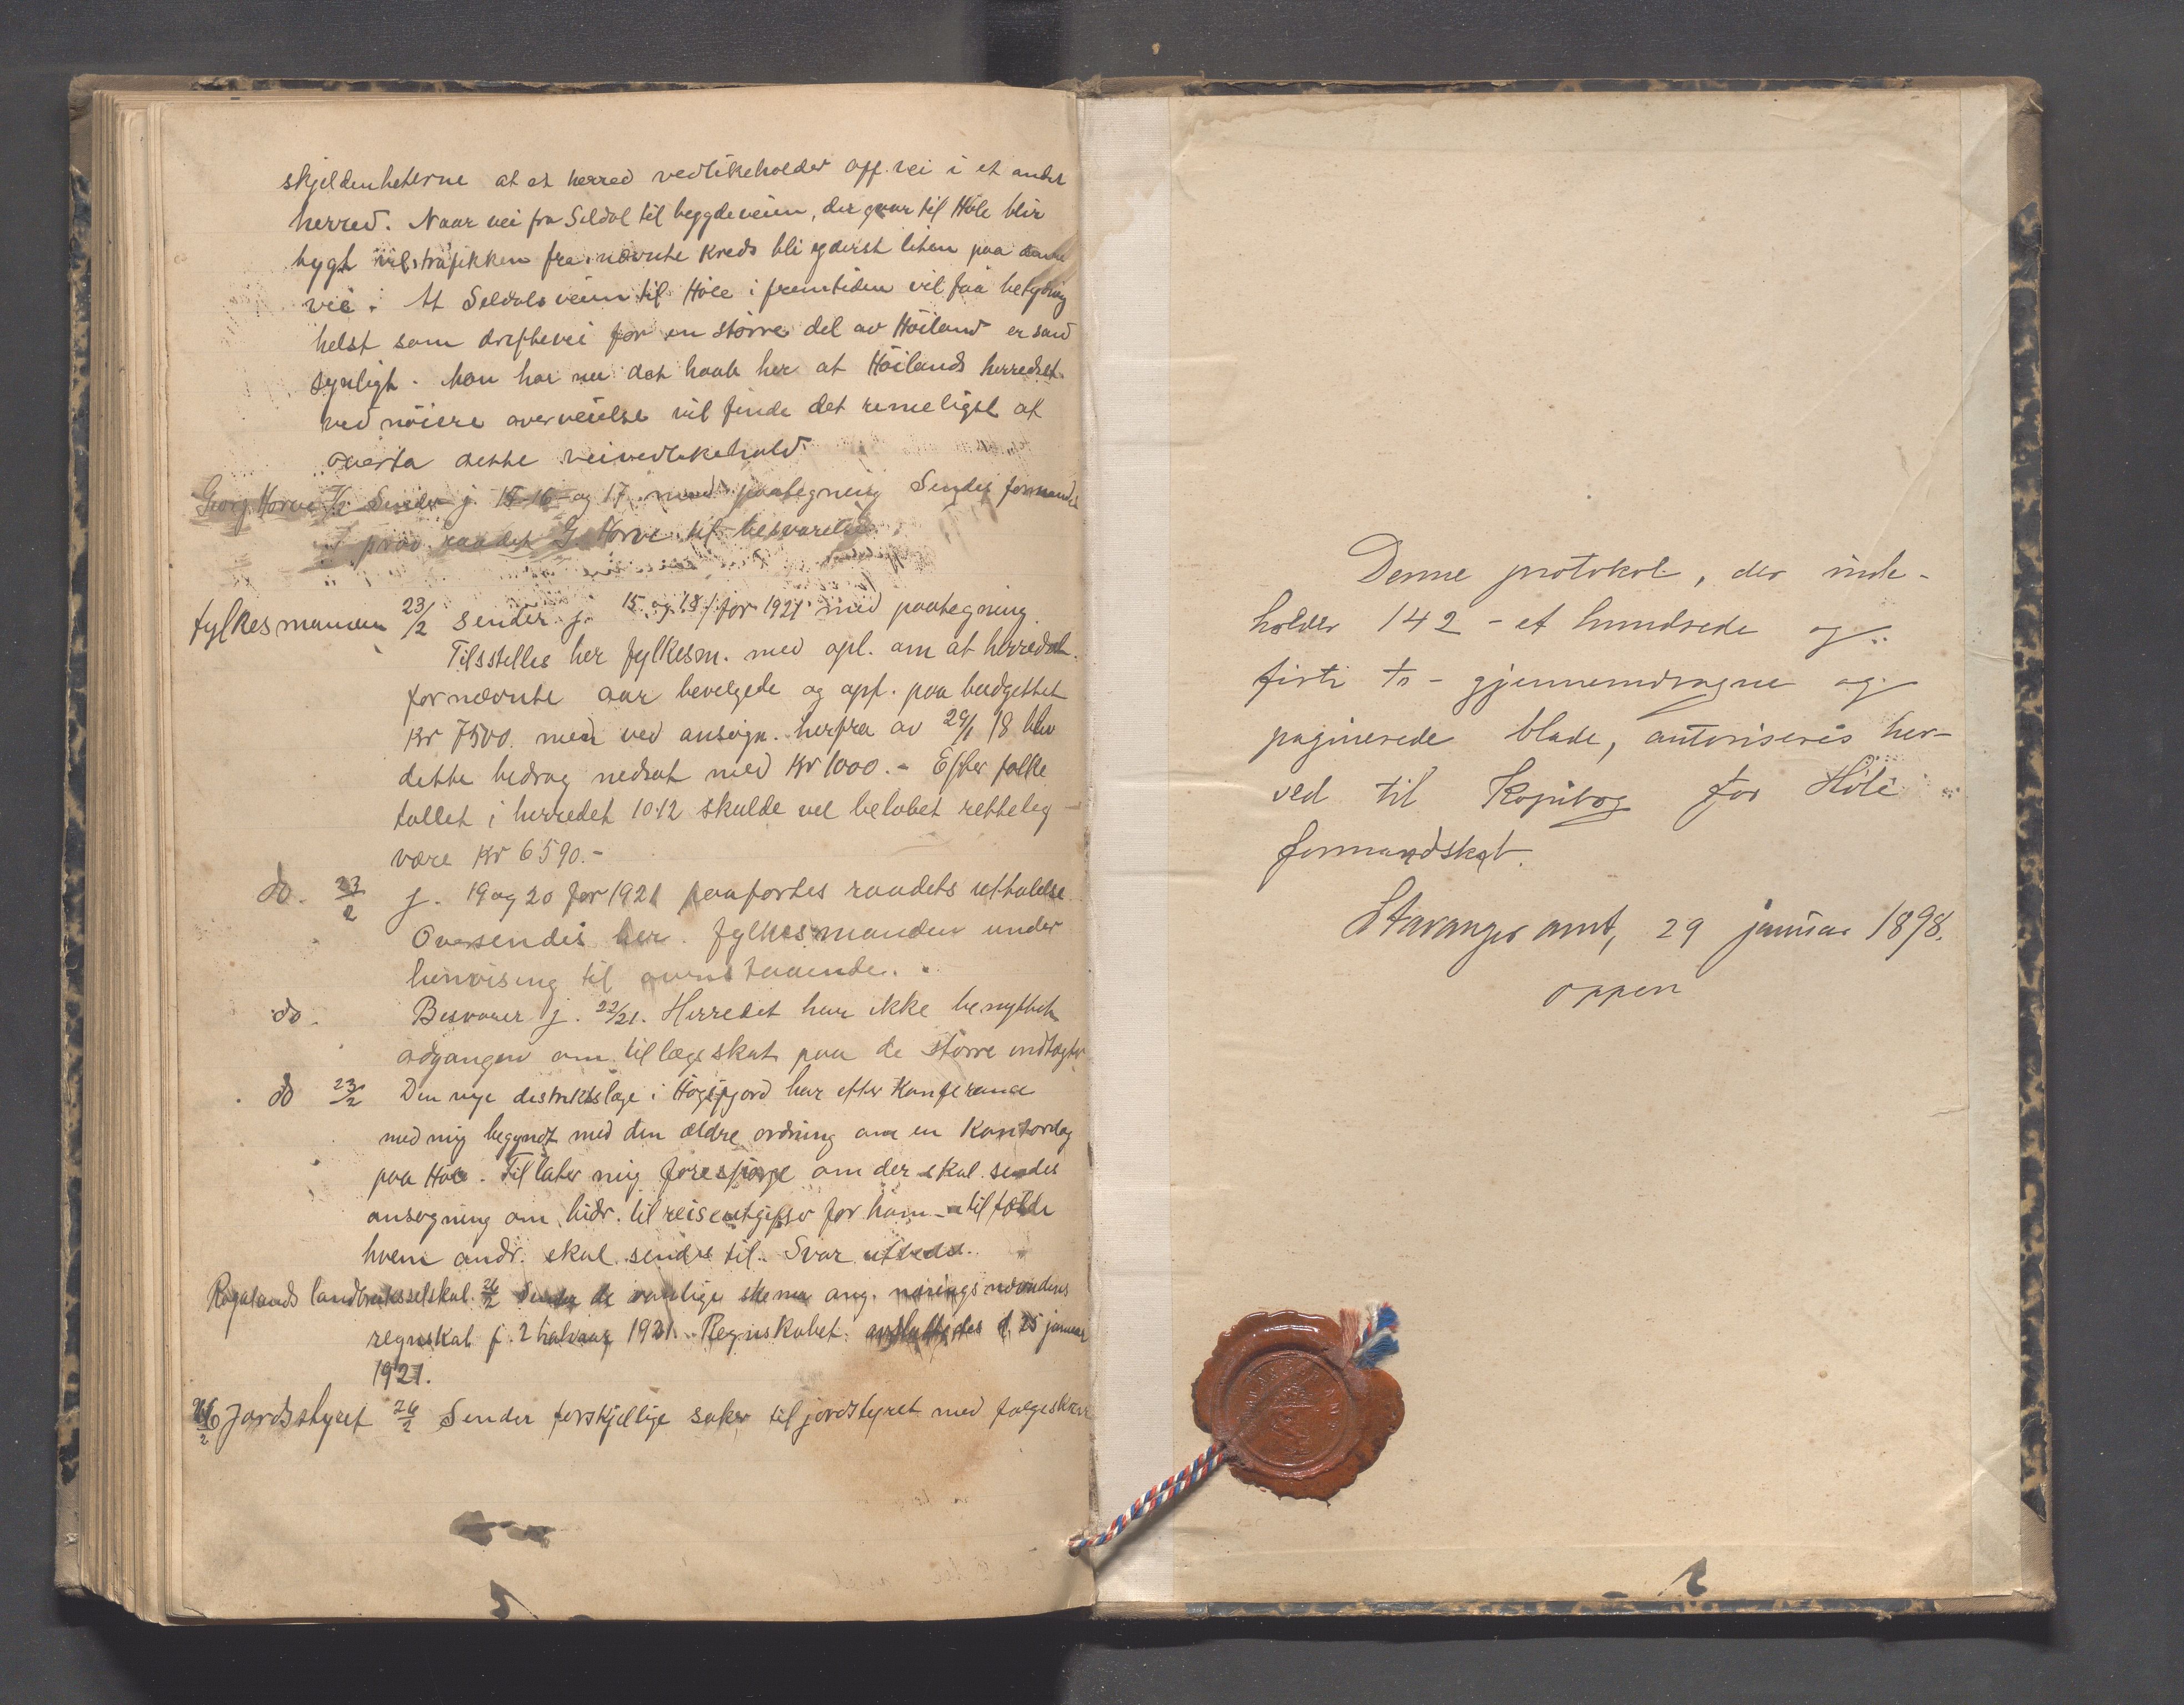 skjeldenheterne at et herred vedlikeholder off. vei i et andet
herred. Naar vei fra Seldal til bygdeveien, der gaar til Høle blir
bygt vil trafikken fra nævnte kreds bli yderst liten paa denne
vei. At Seldalsveien til Høle i fremtiden vil faa betydning
helst som driftevei for en større del av Høiland er sand
synligt. Man har nu det haab her at Høilands herredst.
ved nøiere overveielse vil finde det rimeligst at
overta dette veivedlikehold.
Georg Horve Sender j. 15 16 og 17 med paategning Sendes formand
i prov. raadet G. Horve til besvarelse
fylkesmanden 23/2 sender j. 15 og 18 for 1921 med paategning.
Tilstilles her fylkesm. med opl. om at herredst.
for nævnte aar bevilgede og opf. paa budgettet
Kr 7500. men ved ansøgn. herfra av 29/1 18 blev
dette bedrag nedsat med Kr 1000.- Efter folke
tallet i herredet 1012 skulde vel beløbet rettelig
være Kr 6590.-
do. 23/2 j. 19 og 20 for 1921 paaføres raadets uttalelse.
Oversendes her. fylkesmanden under
henvisning til ovenstaaende.
do. Besvarer j. 22/21. Herredet har ikke benyttet
adgangen om tillægsskat paa de større indtægter
do 23/2 Den nye distriktslæge i Høgsfjord har efter Konferance
med mig begyndt med den ældre ordning om en Kontordag
paa Høle. Tillater mig forespørge om der skal sendes
ansøgning om bidr. til reiseutgifter for ham i tilfælde
hvem andr. skal sendes til. Svar utbedes.
Rogalands landbruksselskal. 26/2 Sender de vanlige skema ang. nærings nævndens
regnskab f. 2 halvaar 1921. Regnskabet avsluttedes d. 25 januar
1921.
26/2 Jordstyret 26/2 Sender forskjellige saker til jordstyret med følgeskriv
Denne protokol, der inde-
holder 142 - et hundrede og
firti to - gjennemdragne og
paginerede blade, autoriseres her-
ved til Kopibog for Høle
formandskab.
Stavanger amt, 29 januar 1898.
Oppen